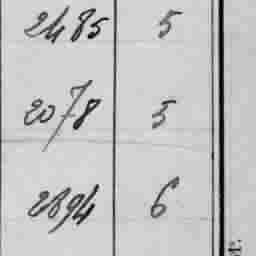 2485 5
2078 5
2894 6